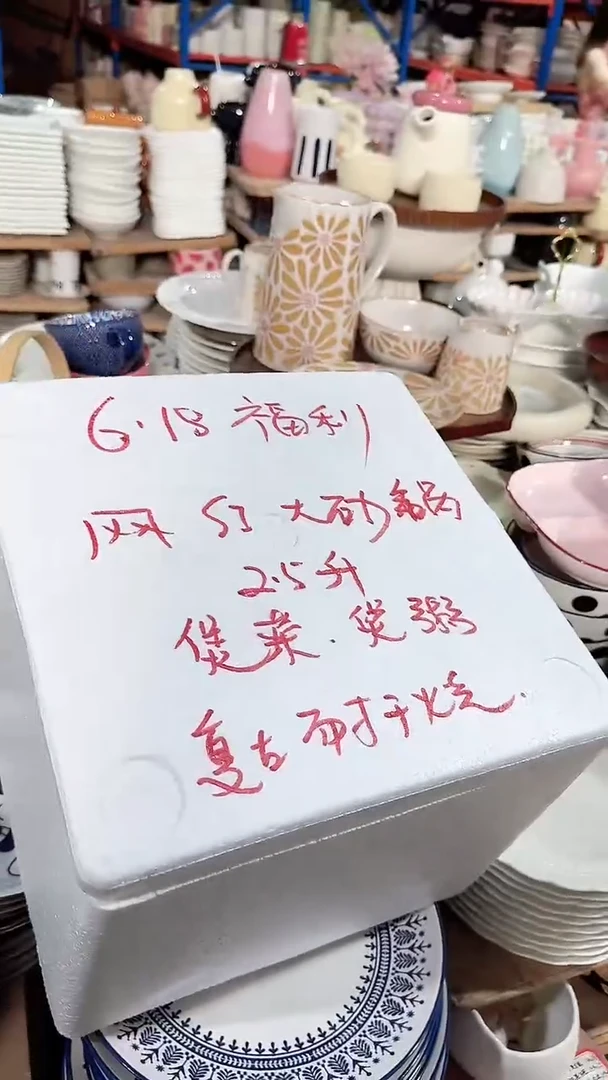 6.18 福利
网红大砂锅
2.5升
煲菜.煲粥
复古耐干烧.